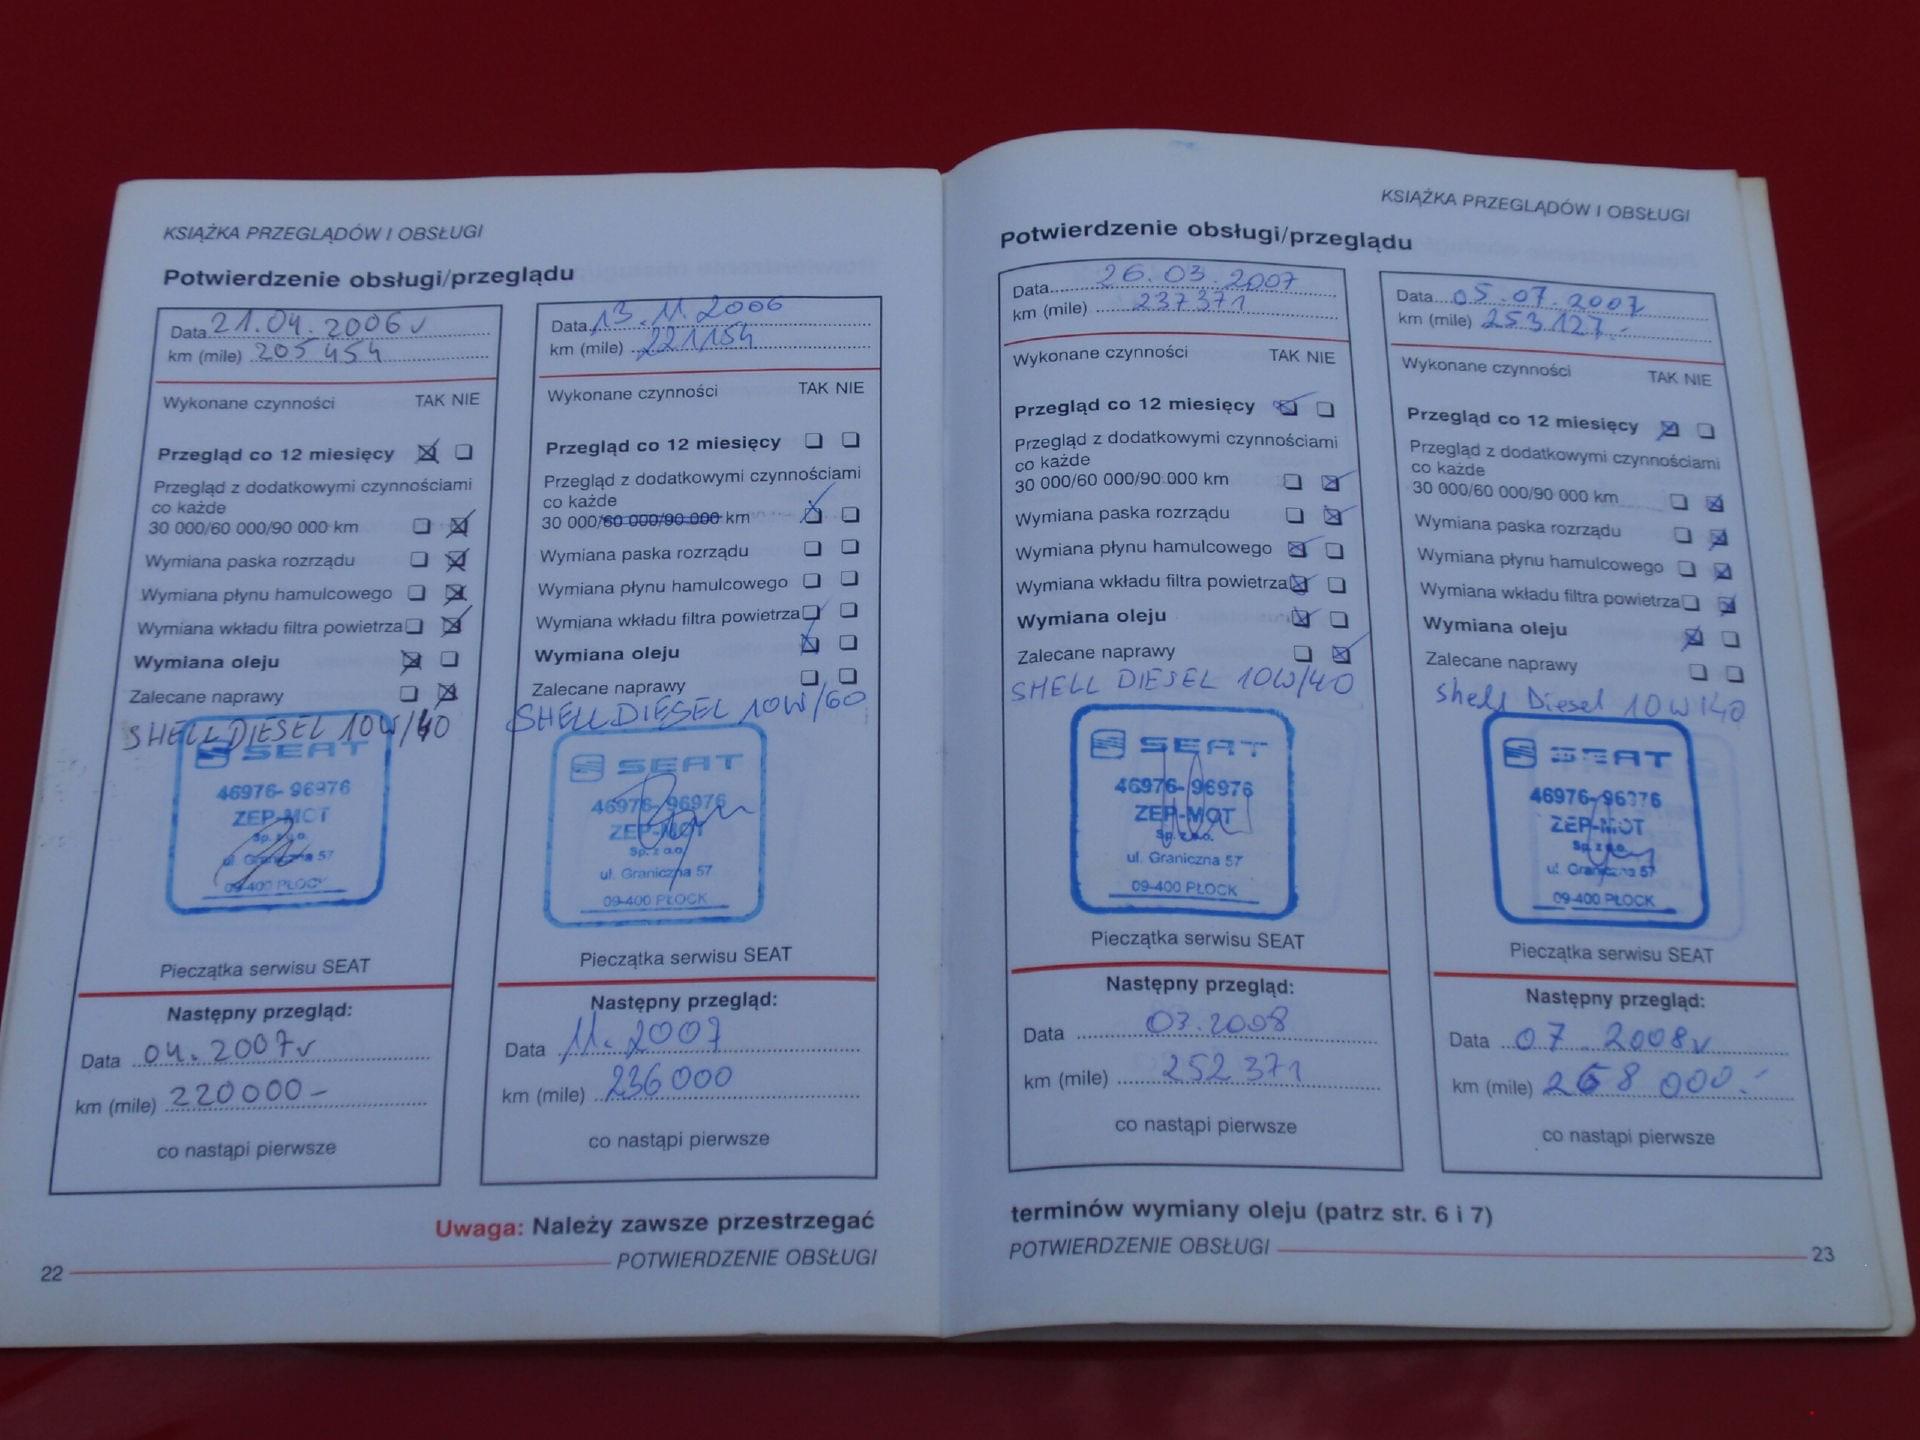 KSIĄŻKA PRZEGLĄDÓW I OBSŁUGI
Potwierdzenie obsługi/przeglądu
Data 21.04.2006r
km (mile) 205 454
Wykonane czynności TAK NIE
Przegląd co 12 miesięcy
Przegląd z dodatkowymi czynnościami
co każde
30 000/60 000/90 000 km
Wymiana paska rozrządu
Wymiana płynu hamulcowego
Wymiana wkładu filtra powietrza
Wymiana oleju
Zalecane naprawy
SHELL DIESEL 10W/40
SEAT
46976-96976
ZEP-MOT
Sp. z o.o.
ul. Graniczna 57
09-400 PŁOCK
Pieczątka serwisu SEAT
Następny przegląd:
Data 04.2007r
km (mile) 220000-
co nastąpi pierwsze
Data 13.11.2006
km (mile) 221154
Wykonane czynności TAK NIE
Przegląd co 12 miesięcy
Przegląd z dodatkowymi czynnościami
co każde
30 000/60 000/90 000 km
Wymiana paska rozrządu
Wymiana płynu hamulcowego
Wymiana wkładu filtra powietrza
Wymiana oleju
Zalecane naprawy
SHELL DIESEL 10W/60
SEAT
46976-96976
ZEP-MOT
Sp. z o.o.
ul. Graniczna 57
09-400 PŁOCK
Pieczątka serwisu SEAT
Następny przegląd:
Data 11.2007
km (mile) 236000
co nastąpi pierwsze
Uwaga: Należy zawsze przestrzegać
22 POTWIERDZENIE OBSŁUGI
KSIĄŻKA PRZEGLĄDÓW I OBSŁUGI
Potwierdzenie obsługi/przeglądu
Data 26.03.2007
km (mile) 237371
Wykonane czynności TAK NIE
Przegląd co 12 miesięcy
Przegląd z dodatkowymi czynnościami
co każde
30 000/60 000/90 000 km
Wymiana paska rozrządu
Wymiana płynu hamulcowego
Wymiana wkładu filtra powietrza
Wymiana oleju
Zalecane naprawy
SHELL DIESEL 10W/40
SEAT
46976-96976
ZEP-MOT
Sp. z o.o.
ul. Graniczna 57
09-400 PŁOCK
Pieczątka serwisu SEAT
Następny przegląd:
Data 03.2008
km (mile) 252 371
co nastąpi pierwsze
Data 05.07.2007
km (mile) 253 127.-
Wykonane czynności TAK NIE
Przegląd co 12 miesięcy
Przegląd z dodatkowymi czynnościami
co każde
30 000/60 000/90 000 km
Wymiana paska rozrządu
Wymiana płynu hamulcowego
Wymiana wkładu filtra powietrza
Wymiana oleju
Zalecane naprawy
Shell Diesel 10W/40
SEAT
46976-96976
ZEP-MOT
Sp. z o.o.
ul. Graniczna 57
09-400 PŁOCK
Pieczątka serwisu SEAT
Następny przegląd:
Data 07.2008r
km (mile) 268 000.-
co nastąpi pierwsze
terminów wymiany oleju (patrz str. 6 i 7)
POTWIERDZENIE OBSŁUGI 23